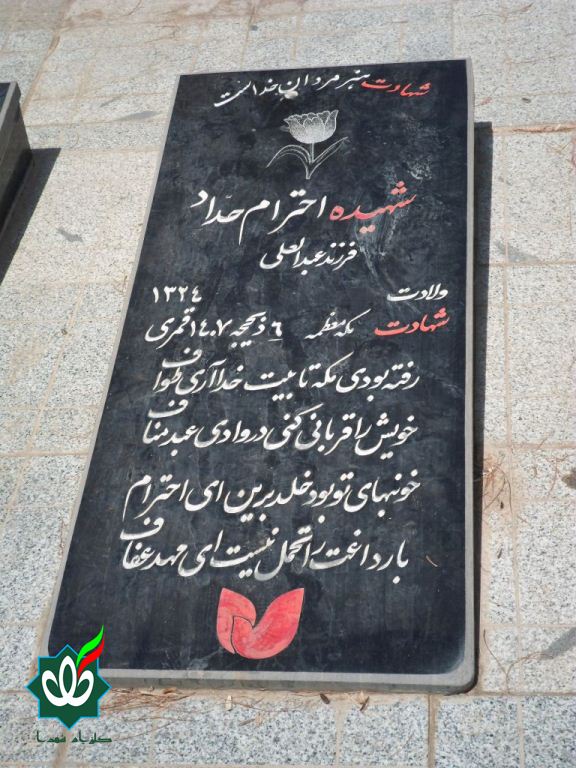 شهادت هنر مردان خداست
شهیده احترام حدّاد
فرزند عبدالعلی
ولادت ۱۳۲۴
شهادت مکه معظمه ٦ ذیحجه ۱۴۰۷ قمری
رفته بودی مکه تا بیت خدا آری طواف
خویش را قربانی کنی در وادی عبد مناف
خونبهای تو بود خلد برین ای احترام
بار داغت را تحمل نیست ای مهد عفاف
گلزار شهدا